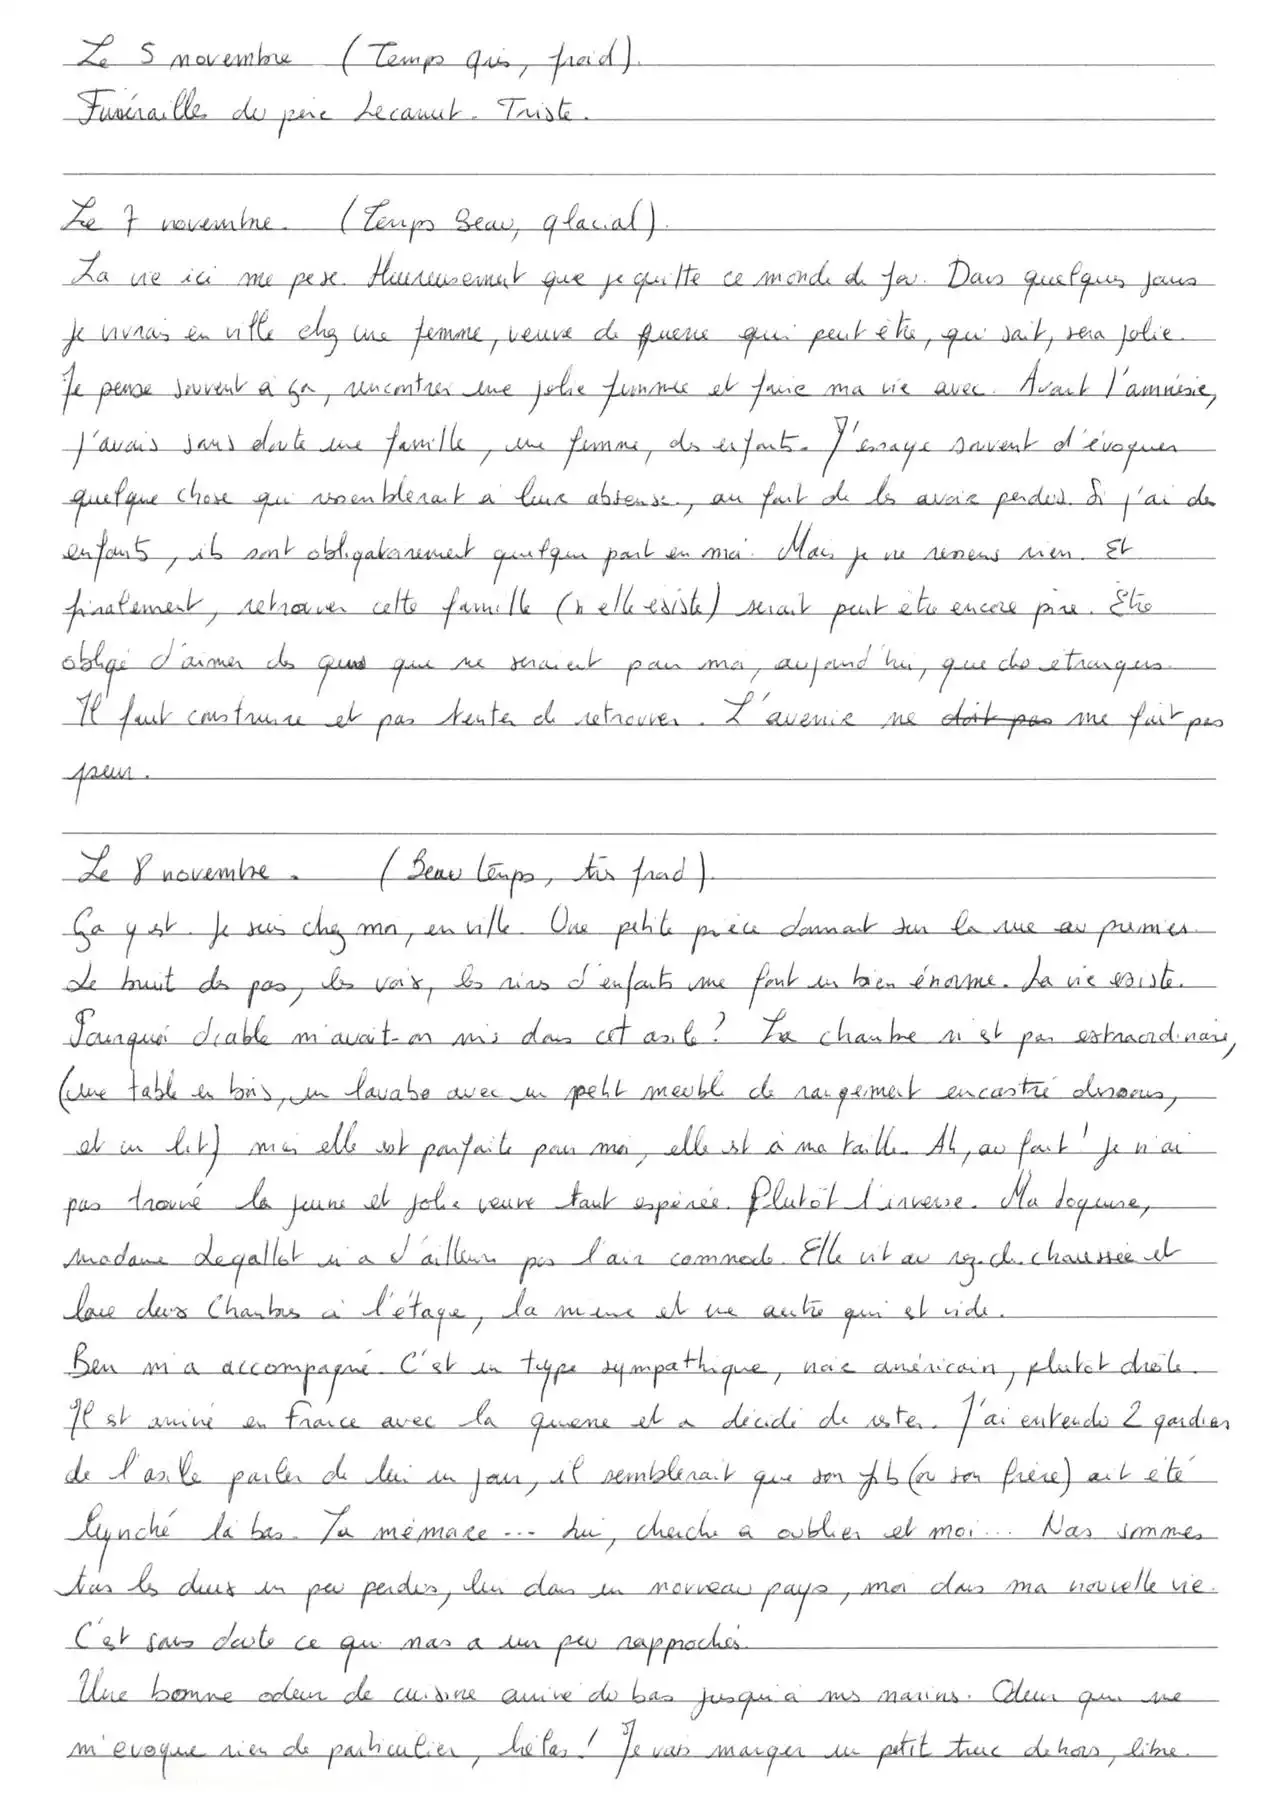 Le 5 novembre (Temps gris, froid).
Funérailles du père Lecanut. Triste.
Le 7 novembre. (Temps Beau, glacial).
La vie ici me pèse. Heureusement que je quitte ce monde de fou. Dans quelques jours
je vivrais en ville chez une femme, veuve de guerre qui peut être, qui sait, sera jolie.
Je pense souvent à ça, rencontrer une jolie femme et faire ma vie avec. Avant l'amnésie,
j'avais sans doute une famille, une femme, des enfants. J'essaye souvent d'évoquer
quelque chose qui ressemblerait à leur absence, au fait de les avoir perdus. Si j'ai des
enfants, ils sont obligatoirement quelque part en moi. Mais je ne ressens rien. Et
finalement, retrouver cette famille (si elle existe) serait peut être encore pire. Etre
obligé d'aimer des gens que ne seraient pour moi, aujourd'hui, que des étrangers.
Il faut construire et pas tenter de retrouver. L'avenir ne doit pas me fait pas
peur.
Le 8 novembre. (Beau temps, très froid).
Ça y est. Je suis chez moi, en ville. Une petite pièce donnant sur la rue au premier.
Le bruit des pas, les voix, les rires d'enfants me font un bien énorme. La vie existe.
Pourquoi diable m'avait-on mis dans cet asile? La chambre n'est pas extraordinaire,
(une table en bois, un lavabo avec un petit meuble de rangement encastré dessous,
et un lit) mais elle est parfaite pour moi, elle est à ma taille. Ah, au fait! Je n'ai
pas trouvé la jeune et jolie veuve tant espérée. Plutôt l'inverse. Ma logeuse,
madame Legallot n'a d'ailleurs pas l'air commode. Elle vit au rez-de-chaussée et
loue deux Chambres à l'étage, la mienne et une autre qui est vide.
Ben m'a accompagné. C'est un type sympathique, noir américain, plutôt drôle.
Il est arrivé en France avec la guerre et a décidé de rester. J'ai entendu 2 gardiens
de l'asile parler de lui un jour, il semblerait que son fils (ou son frère) ait été
lynché là bas. La mémoire... Lui, cherche à oublier et moi... Nous sommes
tous les deux un peu perdus, lui dans un nouveau pays, moi dans ma nouvelle vie.
C'est sans doute ce qui nous a un peu rapprochés.
Une bonne odeur de cuisine arrive du bas jusqu'à mes narines. Odeur qui ne
m'évoque rien de particulier, hélas! Je vais manger un petit truc dehors, libre.